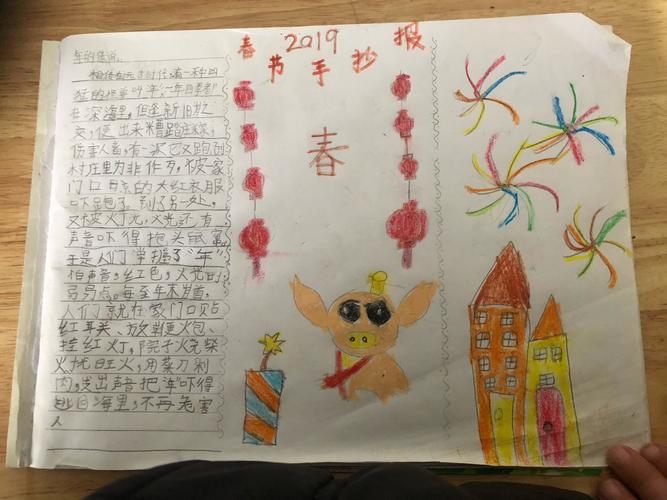 年的传说。
相传在远古时代,有一种凶
猛的怪兽叫"年",年日季都
在深海里,但逢新旧岁
交,便出来糟踏庄稼,
伤害人畜,有一次它又跑到
村庄里为非作歹,被家
门口晾的大红衣服
吓跑了,到了另一处,
又被灯光,火光,还有
声音吓得抱头鼠窜
于是人们掌握了"年"
怕声音,红色,火光的
弱点。每至年末岁首,
人们就在家门口贴
红 对关、放鞭火包、
挂红灯,院子火烧柴
火拢旺火,用菜刀剁
肉,发出声音把"年"吓得
逃回海里,不再危害
人
2019
春节手抄报
春